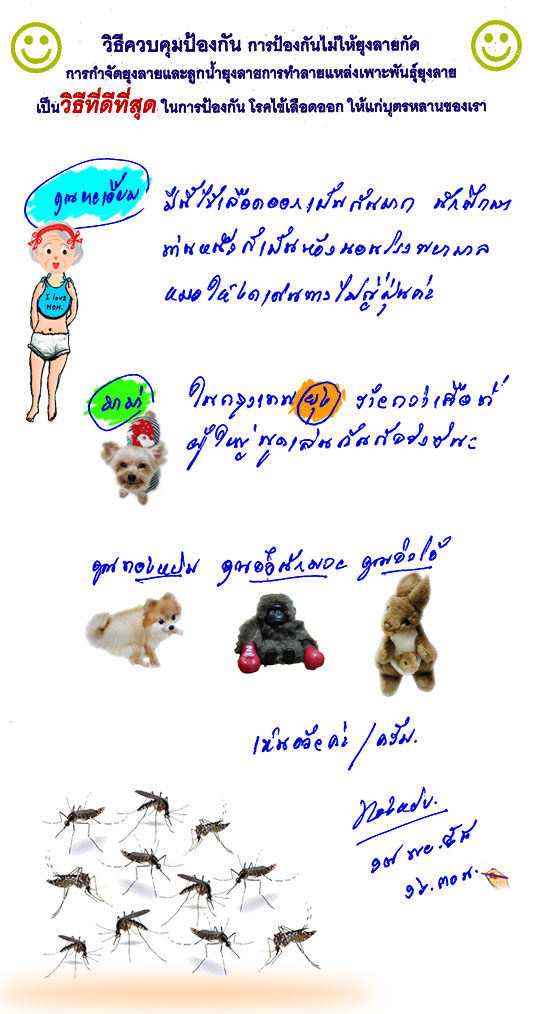 วิธีควบคุมป้องกัน การป้องกันไม่ให้ยุงลายกัด
การกำจัดยุงลายและลูกน้ำยุงลายการทำลายแหล่งเพาะพันธุ์ยุงลาย
เป็นวิธีที่ดีที่สุด ในการป้องกัน โรคไข้เลือดออก ให้แก่บุตรหลานของเรา
คุณทะเอี้ยม
ปีนี้ไข้เลือดออกเป็นกันมาก นักศึกษา
ท่านหนึ่งก็เป็นห้องนอนโรงพยาบาล
หมอให้งดเดินทางไปญี่ปุ่นค่ะ
I love
MOM.
มาม่า
ในกรุงเทพ ยุง ร้ายกว่าเสือที่
ผู้ใหญ่พูดเล่นกันก็จริงซินะ
คุณทองหยิบ
เห็นจริงค่ะ / ครับ.
ทองหยิบ.
๑๗ พย. ๕๖
๑๖.๓๐ น.